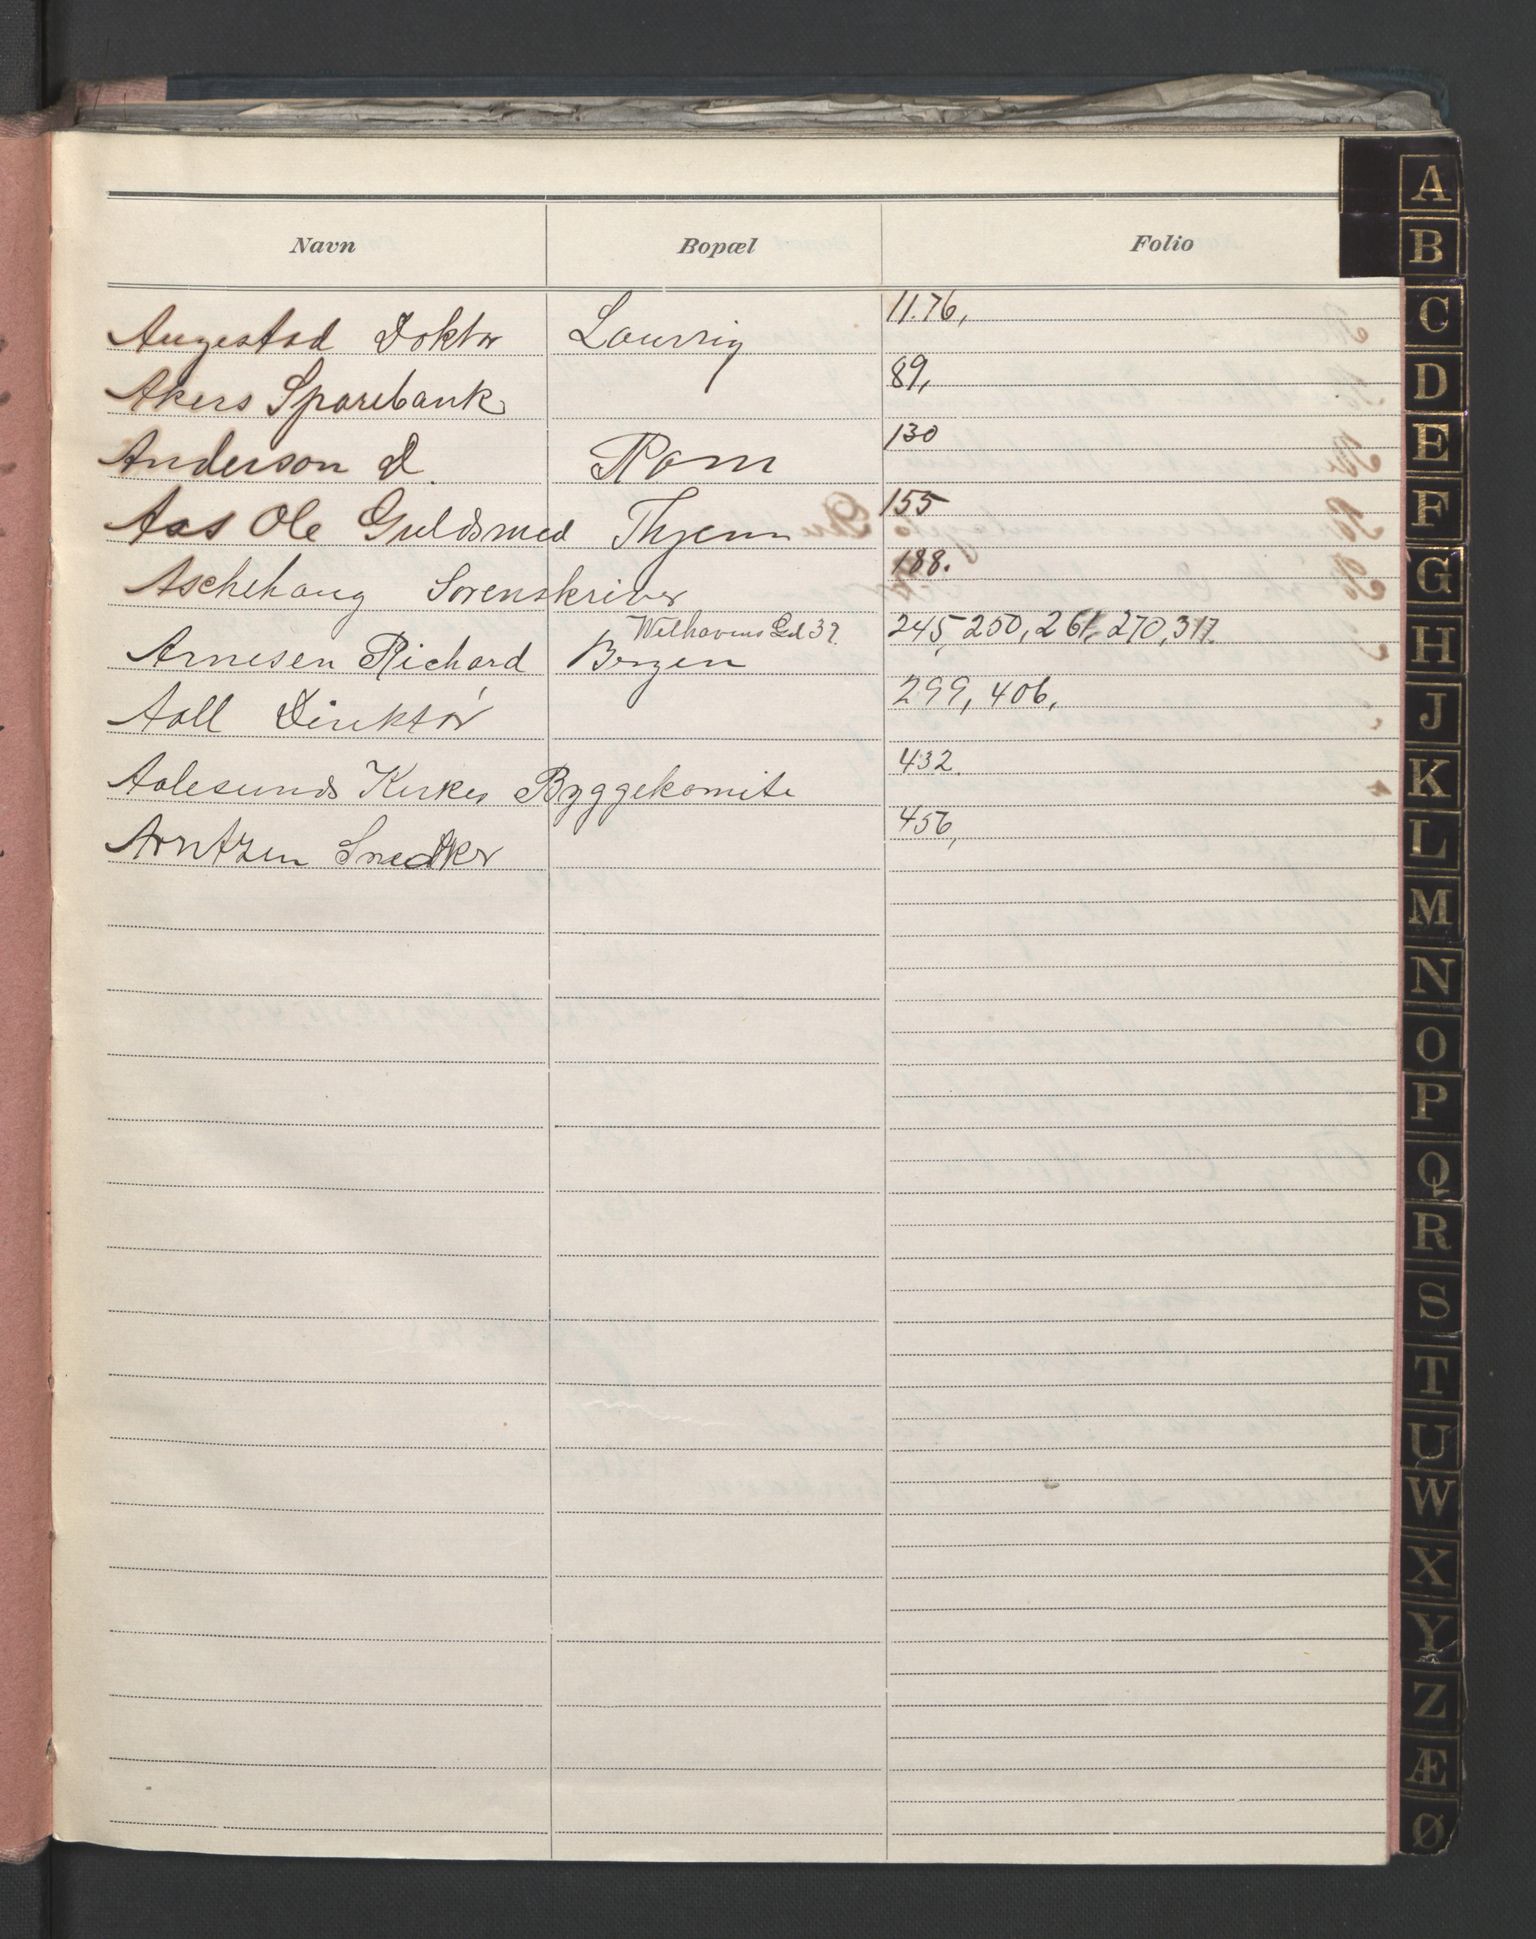 Navn Bopæl Folio
Augestad Doktor Laurvig 11.76,
Akers Sparebank 89,
Anderson D. Rom 130
Aas Ole Guldsmed 155
Aschehoug Sorenskriver 188.
Welhavens Gd 37
Arnesen Richard Bergen 245, 250, 261, 270, 317.
Aall Direktør 299, 406,
Aalesunds Kirkes Byggekomite 432.
Arntzen Snedker 456,
A
B
C
D
E
F
G
H
J
K
L
M
N
O
P
Q
R
S
T
U
W
X
Y
Z
Æ
Ø